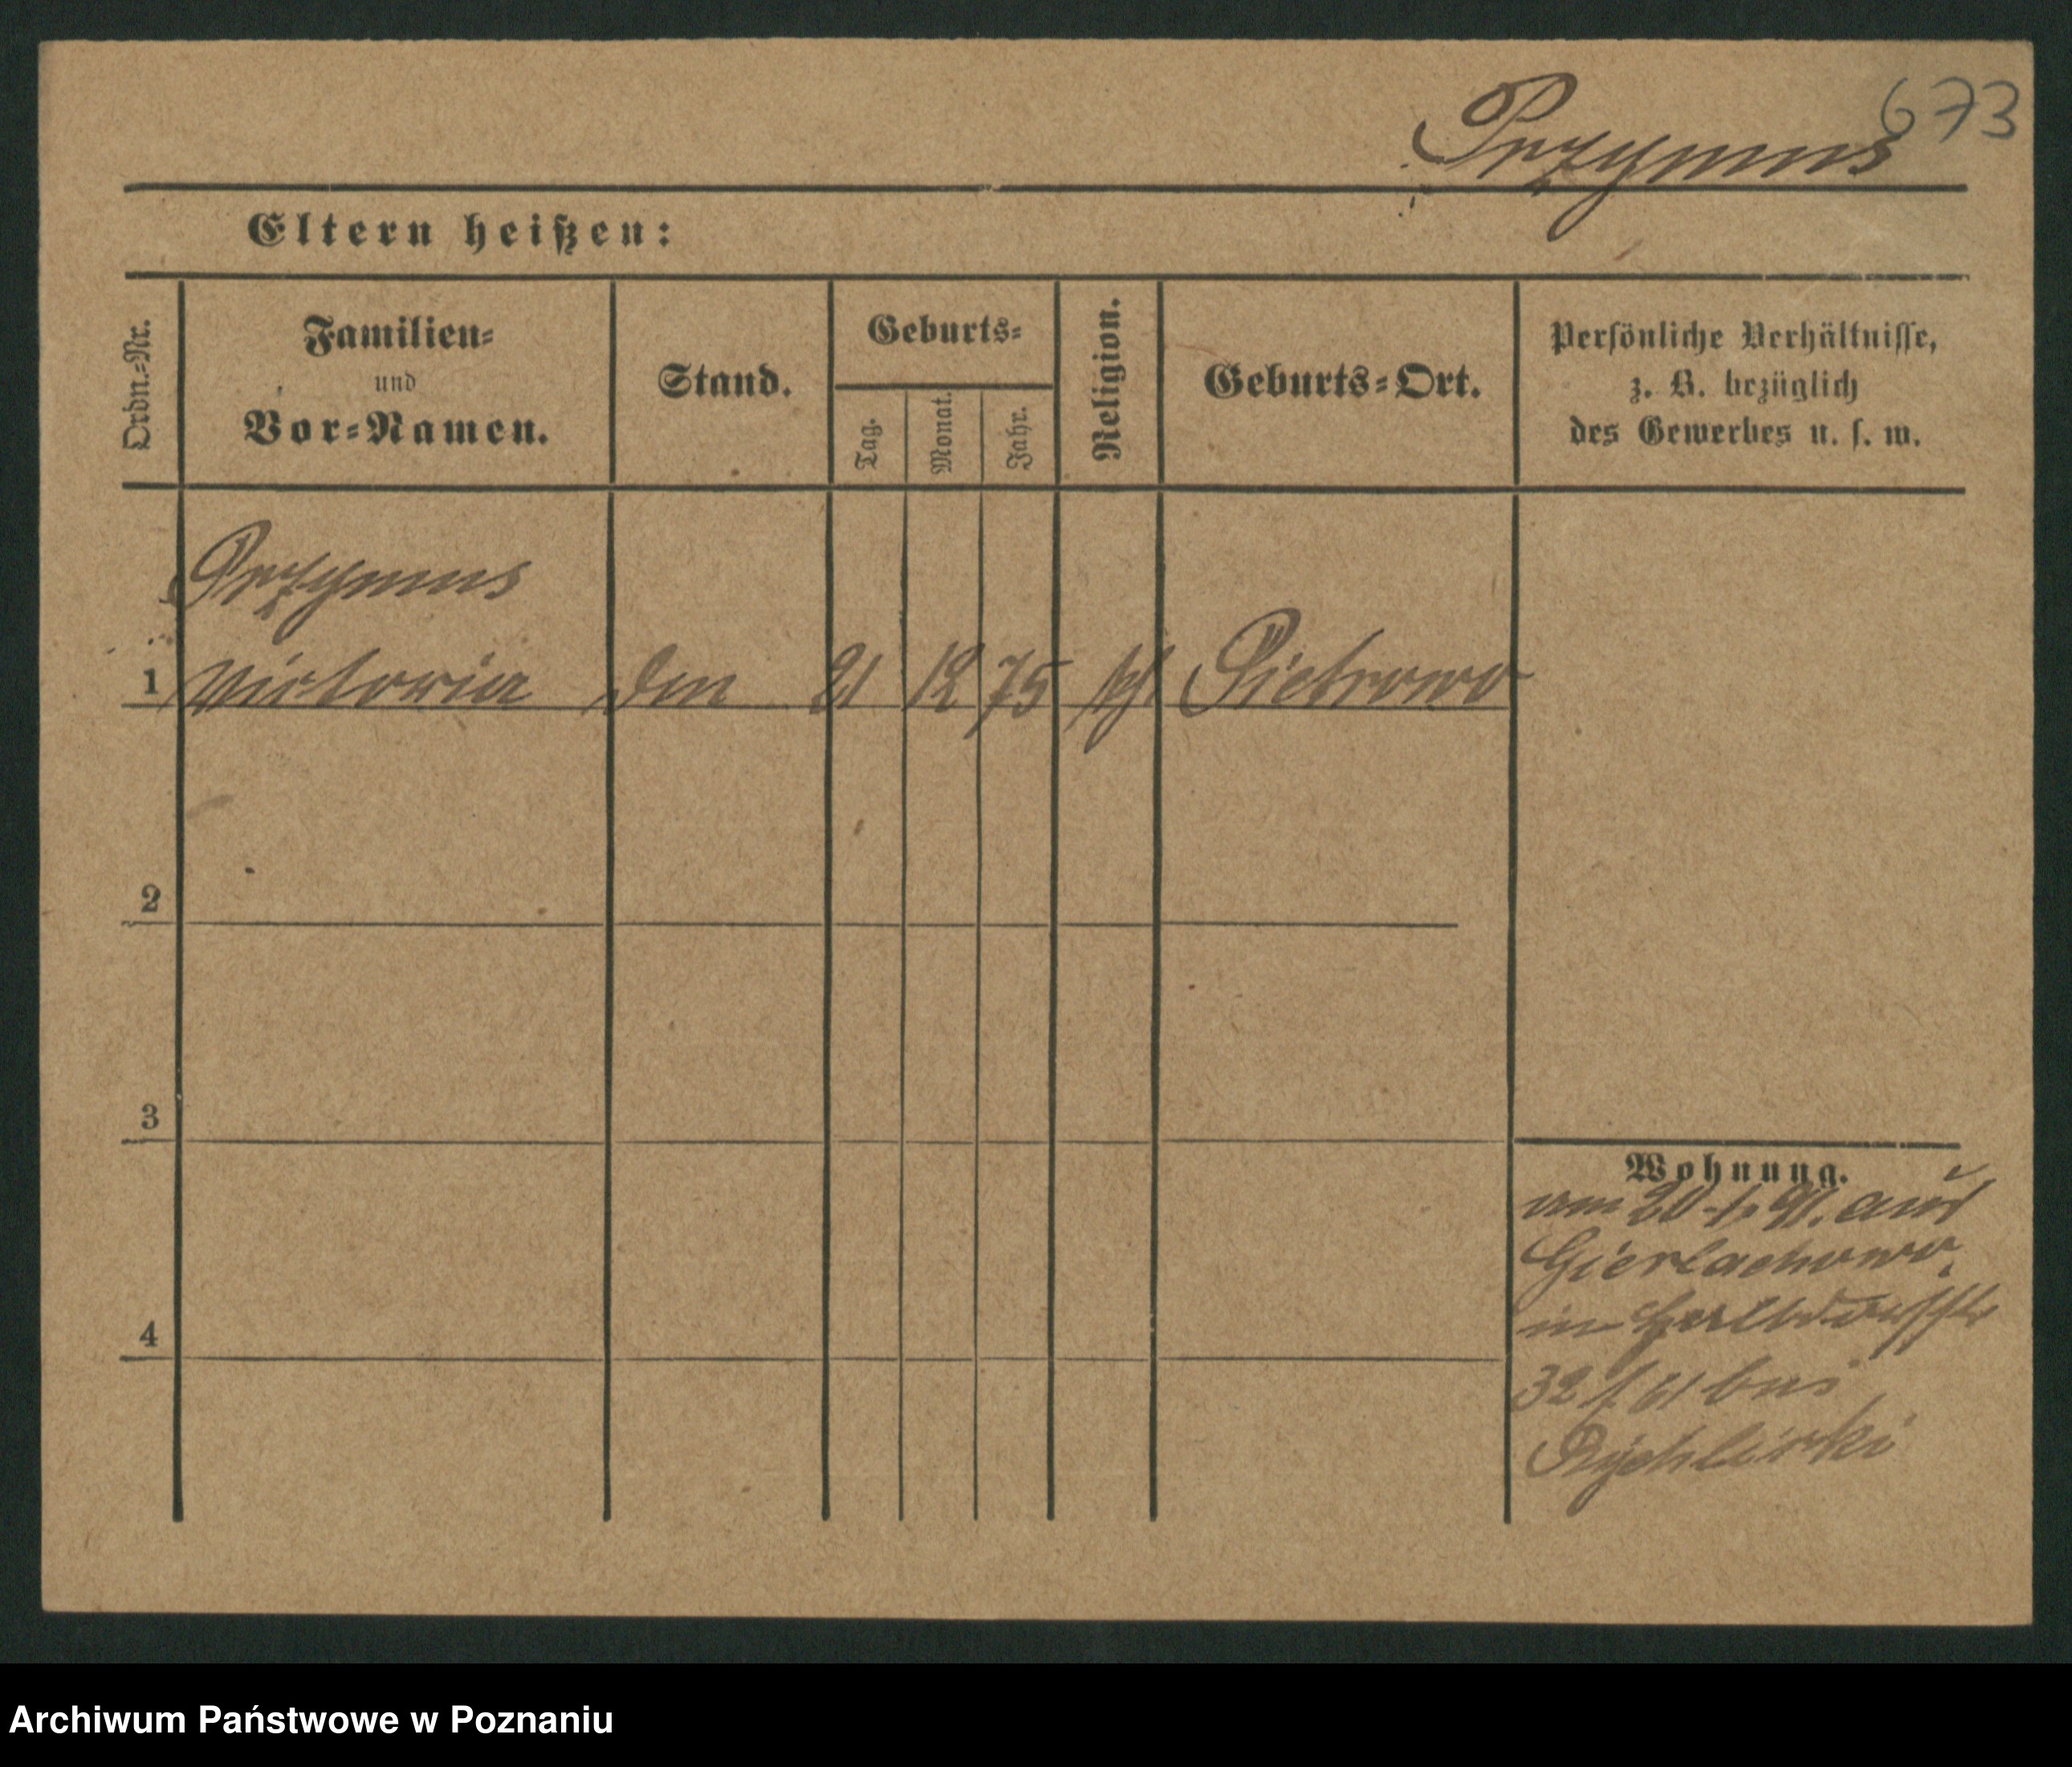 673
Przymus
Eltern heißen:
Ordn.-Nr.
Familien-
und
Vor-Namen.
Stand.
Geburts-
Tag.
Monat.
Jahr.
Religion.
Geburts-Ort.
Persönliche Verhältnisse,
z. B. bezüglich
des Gewerbes u. s. w.
Przymus
1 Victoria 21 12 75 Pietrowo
2
3
Wohnung.
vom 20 91. aus
Gierlachowo,
in
4
32 bei
Rychlicki
Archiwum Państwowe w Poznaniu